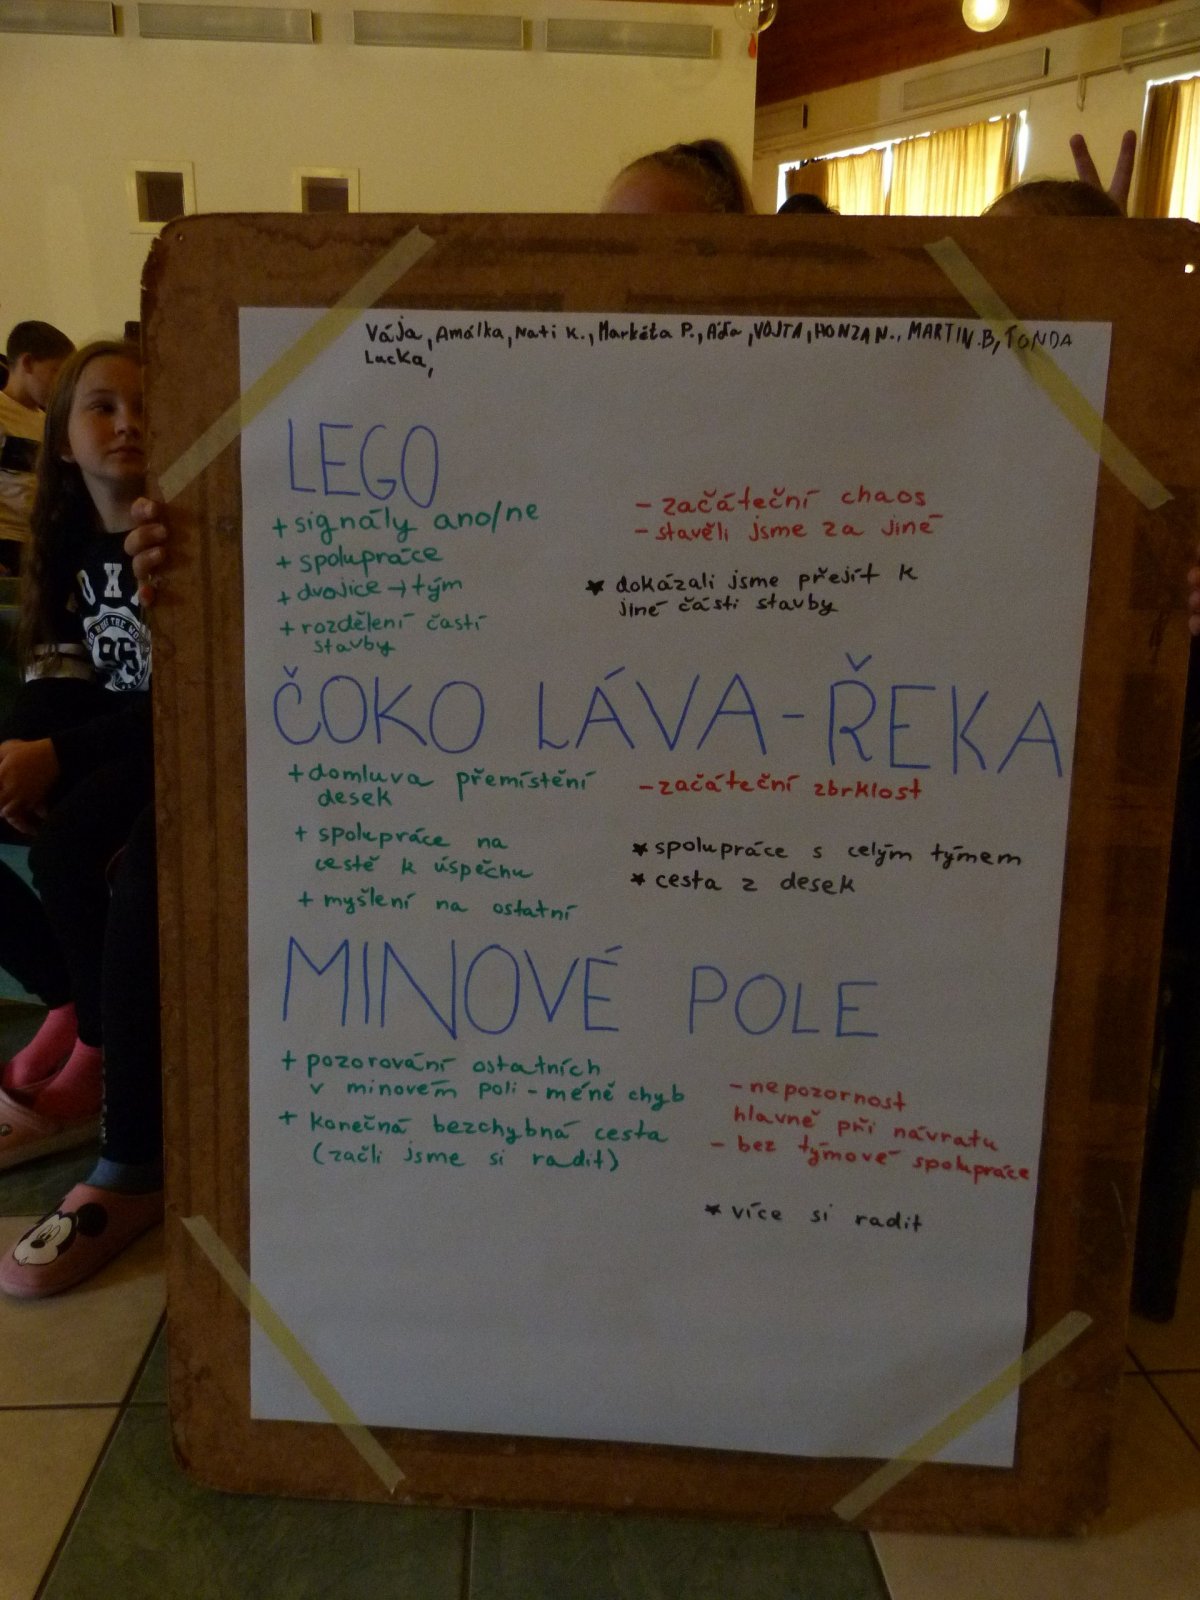 Vája, Amálka, Nati K., Markéta P., Áďa, VOJTA, HONZA N., MARTIN.B, TONDA
Lucka,
LEGO
+ signály ano/ne
+ spolupráce
+ dvojice → tým
+ rozdělení částí
stavby
- začáteční chaos
- stavěli jsme za jiné
* dokázali jsme přejít k
jiné části stavby
ČOKO LÁVA - ŘEKA
+ domluva přemístění
desek
+ spolupráce na
cestě k úspěchu
+ myšlení na ostatní
- začáteční zbrklost
* spolupráce s celým týmem
* cesta z desek
MINOVÉ POLE
+ pozorování ostatních
v minovém poli - méně chyb
+ konečná bezchybná cesta
(začli jsme si radit)
- nepozornost
hlavně při návratu
- bez týmové spolupráce
* více si radit
95